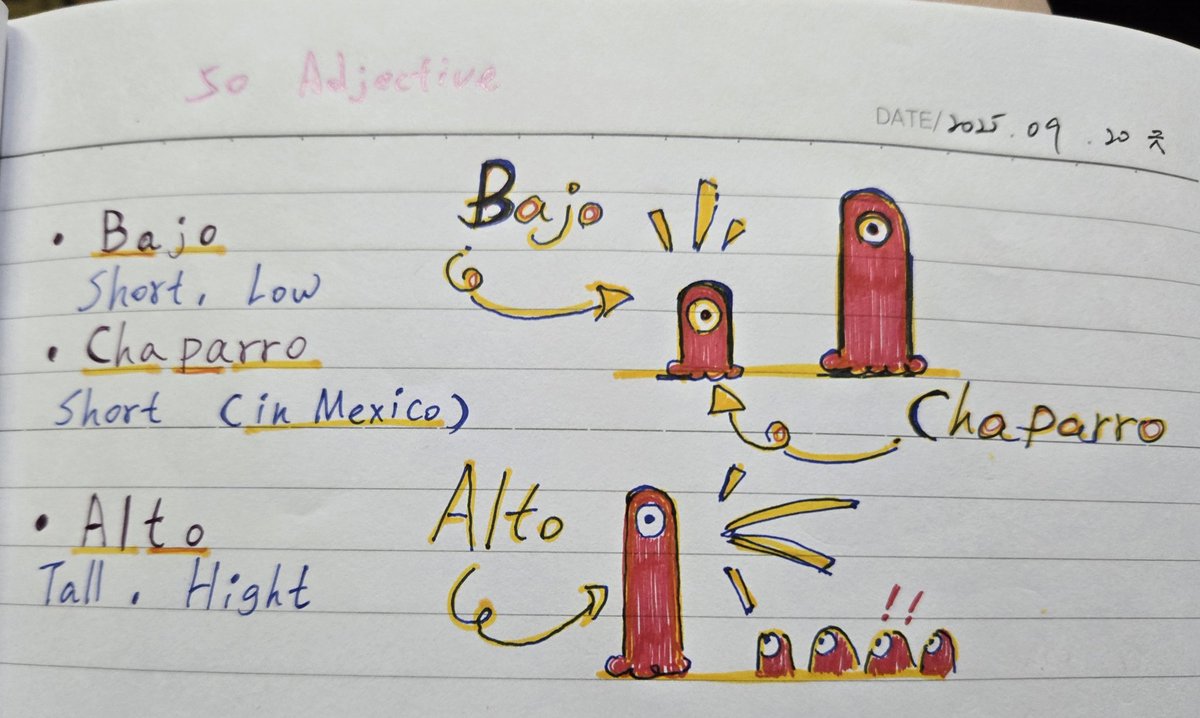 50 Adjective
DATE/2025.09.20
• Bajo
Short, Low
• Chaparro
Short (in Mexico)
• Alto
Tall, Hight
Bajo
Chaparro
Alto
!!